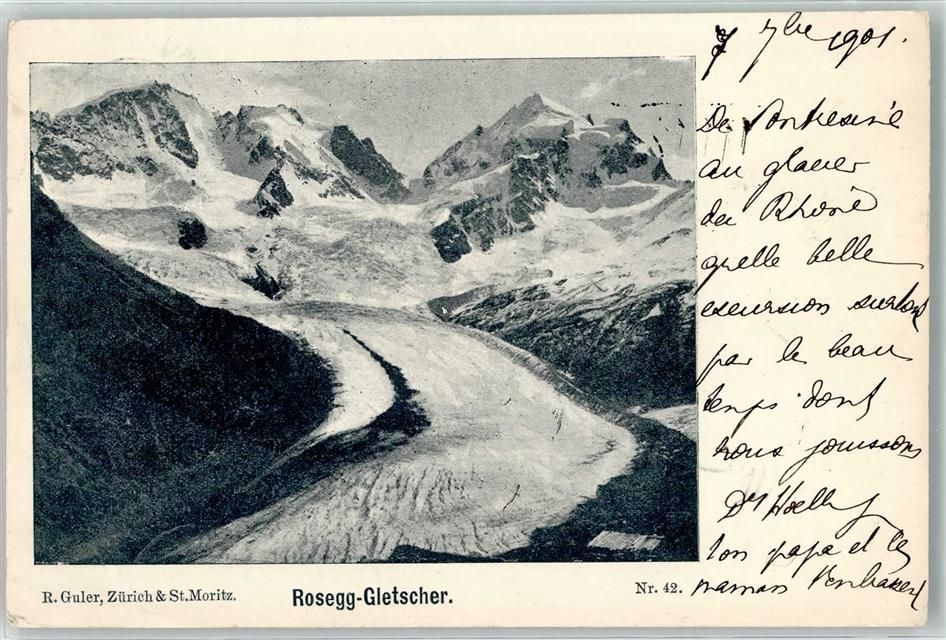 7 7bre 1901.
De Pontresine
au glacier
du Rhône
quelle belle
excursion surtout
par le beau
temps dont
nous jouissons
Dr
ton papa et ta
maman t'embrassent
R. Guler, Zürich & St. Moritz.
Rosegg-Gletscher.
Nr. 42.